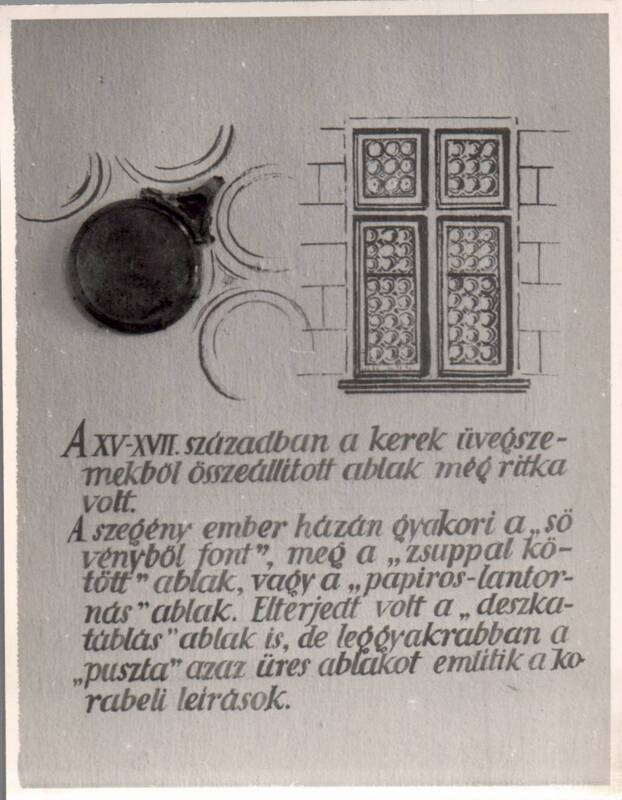 A XV-XVII. században a kerek üvegsze-
mekből összeállított ablak még ritka
volt.
A szegény ember házán gyakori a „sö
vényből font”, meg a „zsuppal kö-
tött” ablak, vagy a „papiros-lantor-
nás” ablak. Elterjedt volt a „deszka-
táblás” ablak is, de leggyakrabban a
„puszta” azaz üres ablakot emlitik a ko-
rabeli leirások.